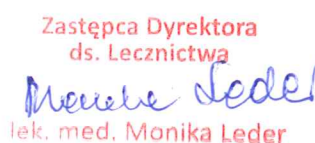 Zastępca Dyrektora
ds. Lecznictwa
Monika Leder
lek. med. Monika Leder